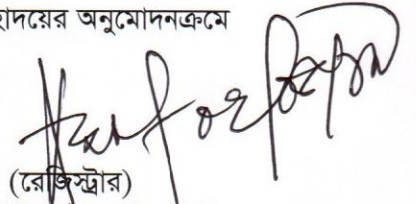 হোদয়ের অনুমোদনক্রমে
(রেজিস্ট্রার)